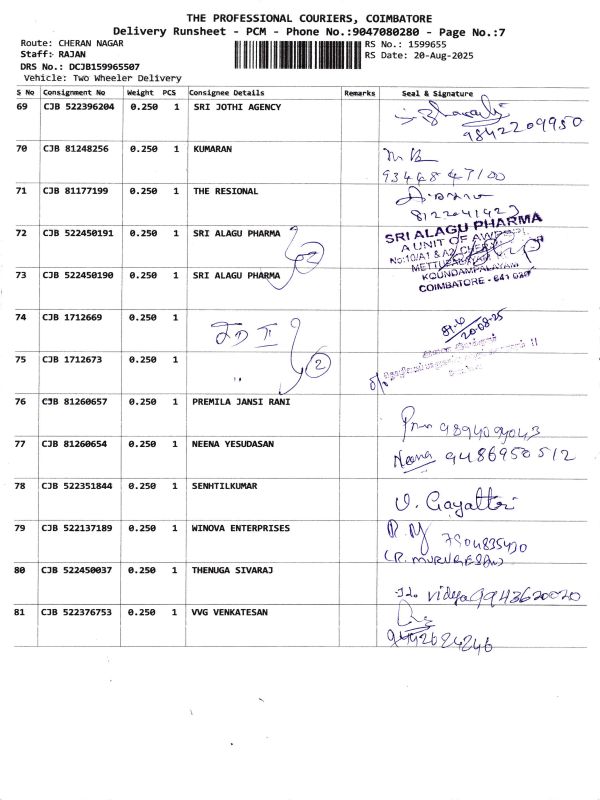 THE PROFESSIONAL COURIERS, COIMBATORE
Delivery Runsheet - PCM - Phone No.:9047080280 - Page No.:7
Route: CHERAN NAGAR
RS No.: 1599655
Staff: RAJAN
RS Date: 20-Aug-2025
DRS No.: DCJB159965507
Vehicle: Two Wheeler Delivery
S No Consignment No Weight PCS Consignee Details Remarks Seal & Signature
69 CJB 522396204 0.250 1 SRI JOTHI AGENCY
9842209950
70 CJB 81248256 0.250 1 KUMARAN
9344847100
71 CJB 81177199 0.250 1 THE RESIONAL
8122041423
72 CJB 522450191 0.250 1 SRI ALAGU PHARMA
SRI ALAGU PHARMA
A UNIT OF
No:10/A1 & A2
2
73 CJB 522450190 0.250 1 SRI ALAGU PHARMA
KOUNDAMPALAYAM
COIMBATORE - 641 030
74 CJB 1712669 0.250 1
20-08-25
75 CJB 1712673 0.250 1
2
76 CJB 81260657 0.250 1 PREMILA JANSI RANI
9894094043
77 CJB 81260654 0.250 1 NEENA YESUDASAN
Neena 9486950512
78 CJB 522351844 0.250 1 SENHTILKUMAR
V. Gayathri
79 CJB 522137189 0.250 1 WINOVA ENTERPRISES
7904835490
(R. MURUGESAN)
80 CJB 522450037 0.250 1 THENUGA SIVARAJ
vidya 9943620020
81 CJB 522376753 0.250 1 VVG VENKATESAN
9442624246